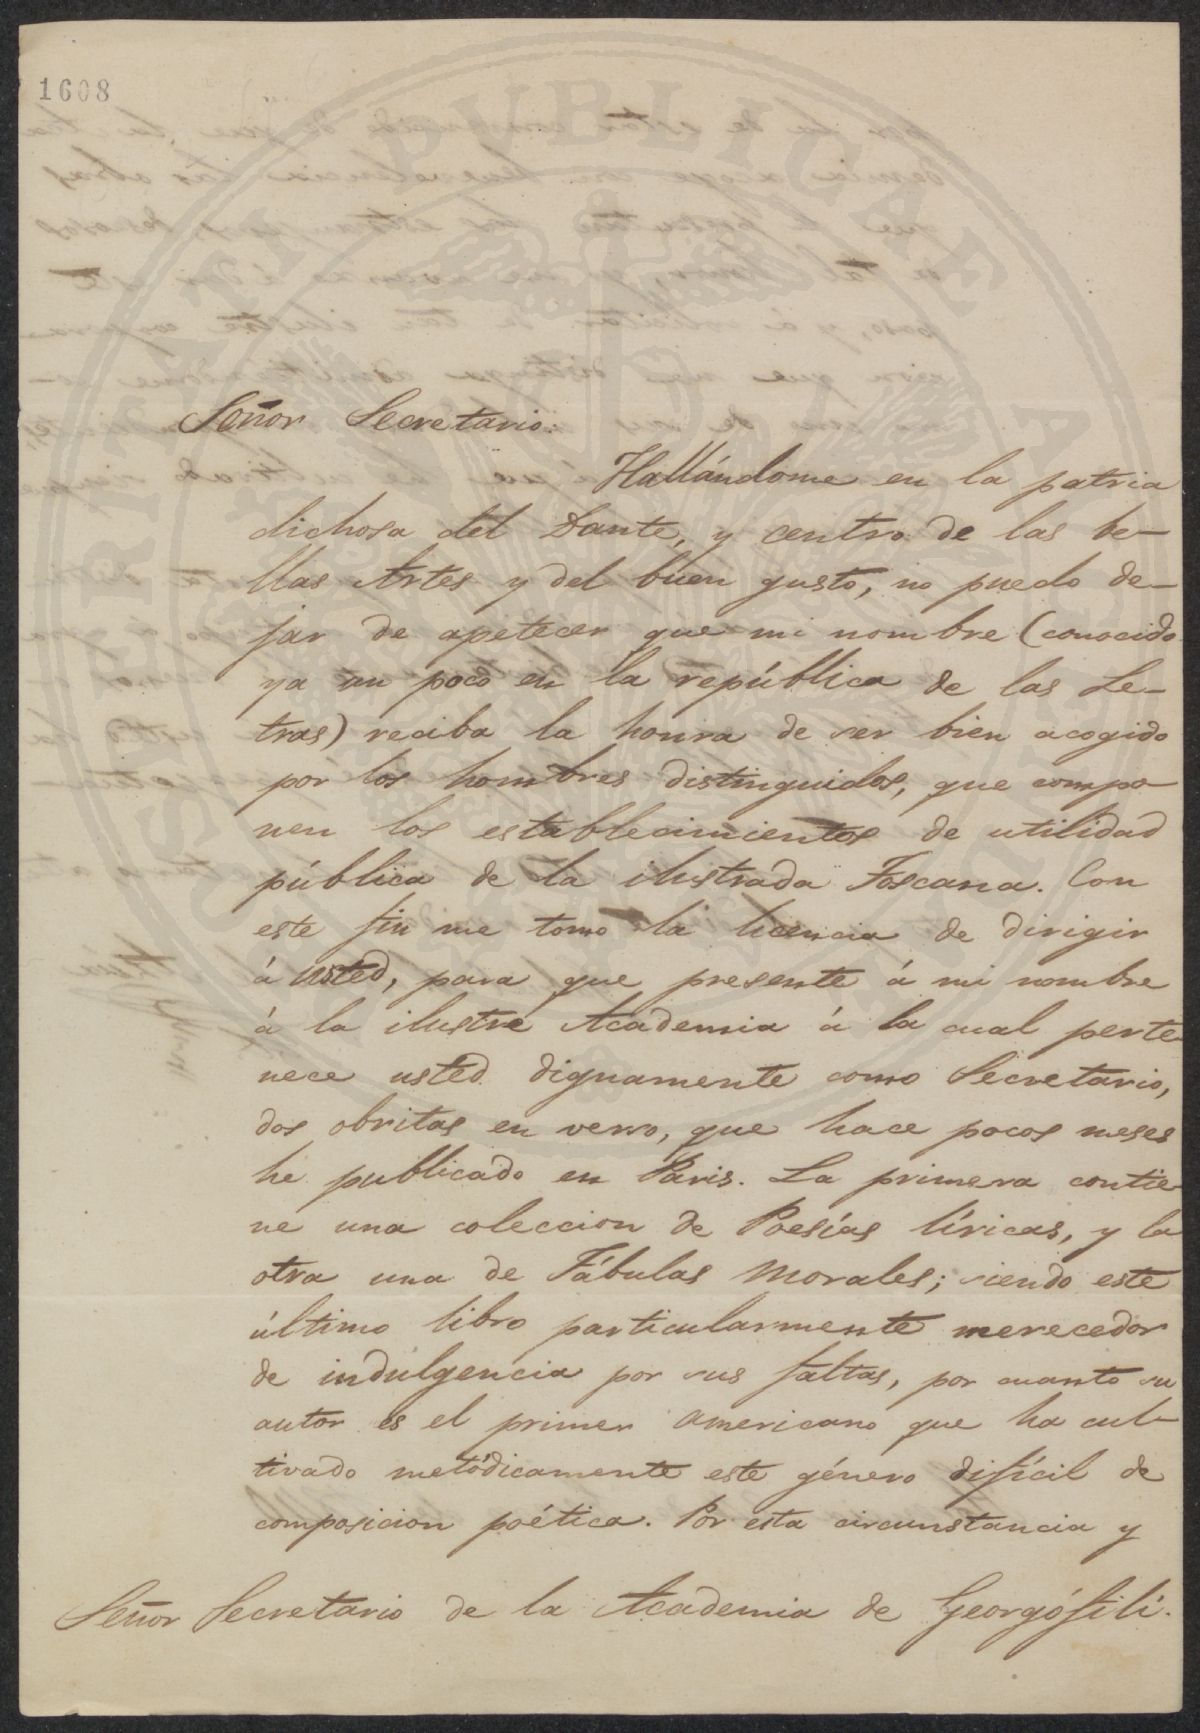 1608
PROSPERITATI PVBLICAE AVGENDAE
Señor Secretario:
Hallándome en la patria
dichosa del Dante, y centro de las be-
llas Artes y del buen gusto, no puedo de-
jar de apetecer que mi nombre (conocido
ya un poco en la república de las Le-
tras) reciba la honra de ser bien acogido
por los hombres distinguidos, que compo-
nen los establecimientos de utilidad
pública de la ilustrada Toscana. Con
este fin me tomo la licencia de dirigir
á usted, para que presente á mi nombre
á la ilustre Academia á la cual perte-
nece usted dignamente como Secretario,
dos obritas en verso, que hace pocos meses
he publicado en Paris. La primera contie-
ne una coleccion de Poesías líricas, y la
otra una de Fábulas Morales; siendo este
último libro particularmente merecedor
de indulgencia por sus faltas, por cuanto su
autor es el primer americano que ha cul-
tivado metódicamente este género difícil de
composicion poética. Por esta circunstancia y
Señor Secretario de la Academia de Georgófili.